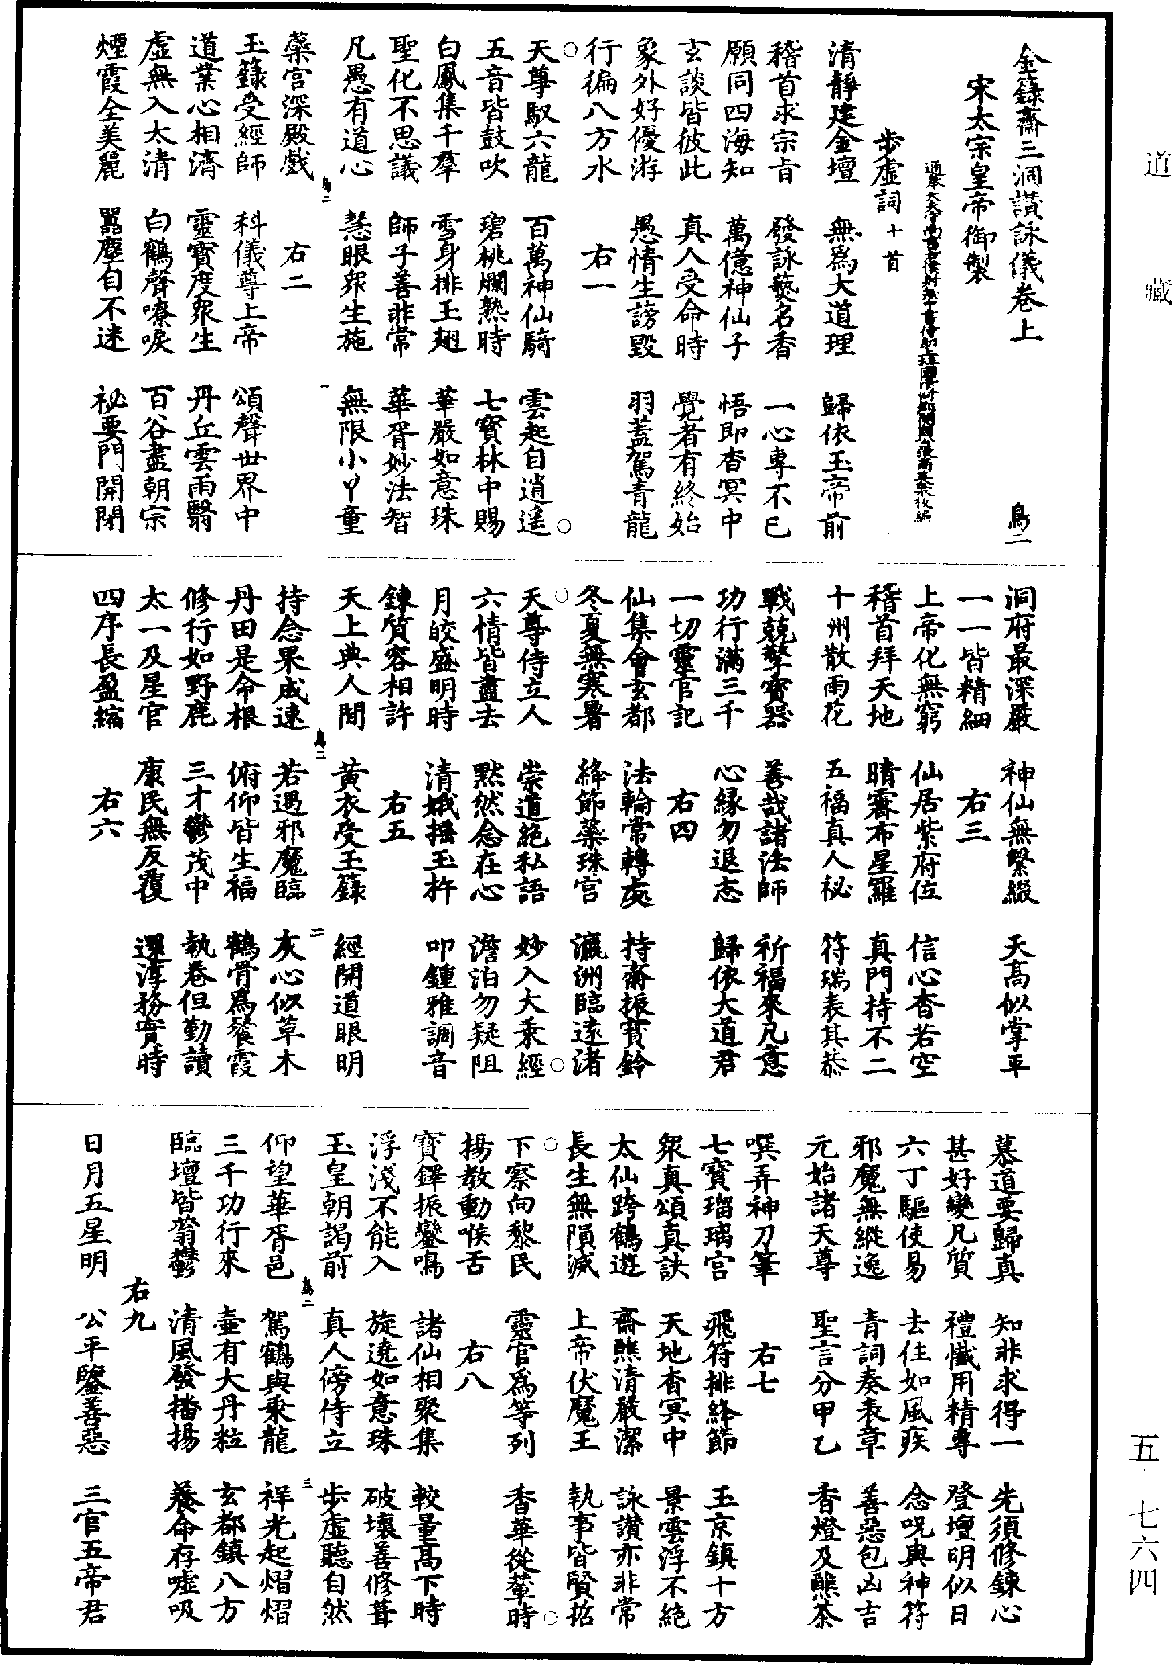 道藏
金籙齋三洞讚詠儀卷上 鳥二
宋太宗皇帝御製
步虛詞十首
清靜建金壇 無為大道理 歸依玉帝前
稽首求宗旨 發詠藝名香 一心專不已
願同四海知 萬億神仙子 悟即杳冥中
玄談皆彼此 真人受命時 覺者有終始
象外好優游 愚情生謗毀 羽蓋駕青龍
行徧八方水
右一
天尊馭六龍 百萬神仙騎 雲起自逍遙
五音皆鼓吹 碧桃爛熟時 七寶林中賜
白鳳集千羣 雪身排玉翅 華嚴如意珠
聖化不思議 師子善非常 華胥妙法智
凡愚有道心 慧眼眾生施 無限小丫童
蘂宮深殿戲
右二
玉籙受經師 科儀尊上帝 頌聲世界中
道業心相濟 靈寶度眾生 丹丘雲雨翳
虛無入太清 白鶴聲嘹唳 百谷盡朝宗
煙霞全美麗 囂塵自不迷 祕要門開閉
洞府最深嚴 神仙無繫綴 天高似掌平
一一皆精細
右三
上帝化無窮 仙居紫府位 信心杳若空
稽首拜天地 晴霽布星羅 真門持不二
十州散雨花 五福真人祕 符瑞表其恭
戰兢擎寶器 善哉諸法師 祈福來凡意
功行滿三千 心緣勿退志 歸依大道君
一切靈官記
右四
仙集會玄都 法輪常轉處 持齋振寶鈴
冬夏無寒暑 絳節蘂珠宮 瀛洲臨遠渚
天尊侍立人 崇道絕私語 妙入大乘經
六情皆盡去 默然念在心 澹泊勿疑阻
月皎盛明時 清娥搖玉杵 叩鍾雅調音
鍊質容相許
右五
天上典人間 黃衣受玉籙 經開道眼明
持念果成速 若遇邪魔臨 灰心似草木
丹田是命根 俯仰皆生福 鶴骨為餐霞
修行如野鹿 三才鬱茂中 執卷但勤讀
太一及星官 康民無反覆 還淳務實時
四序長盈縮
右六
慕道要歸真 知非求得一 先須修鍊心
甚好變凡質 禮懺用精專 登壇明似日
六丁驅使易 去住如風疾 念呪與神符
邪魔無縱逸 青詞奏表章 善惡包凶吉
元始諸天尊 聖言分甲乙 香燈及醮茶
噀弄神刀筆
右七
七寶瑠璃宮 飛符排絳節 玉京鎮十方
眾真頌真訣 天地杳冥中 景雲浮不絕
太仙跨鶴遊 齋醮清嚴潔 詠讚亦非常
長生無隕滅 上帝伏魔王 執事皆賢招
下察向黎民 靈官為等列 香華從輦時
揚教動喉舌
右八
寶鐸振鑾鳴 諸仙相聚集 較量高下時
浮淺不能入 旋遶如意珠 破壞善修葺
玉皇朝謁前 真人傍侍立 步虛聽自然
仰望華胥邑 駕鶴與乘龍 祥光起熠熠
三千功行來 壺有大丹粒 玄都鎮八方
臨壇皆蓊鬱 清風發播揚 養命存噓吸
右九
日月五星明 公平鑒善惡 三官五帝君
五 七六四